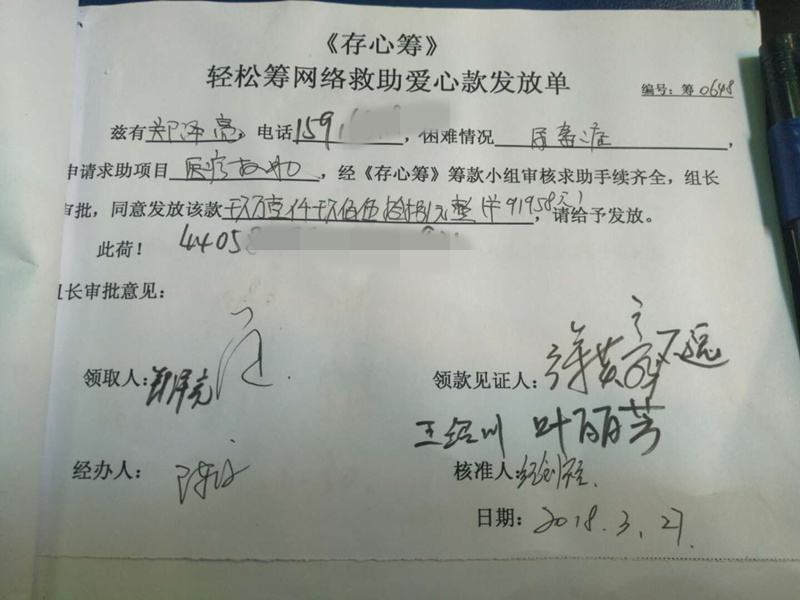 《存心筹》
轻松筹网络救助爱心款发放单
编号：筹0648
兹有郑泽亮，电话159，困难情况尿毒症，
申请求助项目医疗救助，经《存心筹》筹款小组审核求助手续齐全，组长
审批，同意发放该款玖万壹仟玖佰伍拾捌元整(¥91958元)，请给予发放。
此荷！ 44058
组长审批意见：
领取人：郑泽亮 领款见证人：
王绍川 叶丽芳
经办人： 核准人：
日期：2018.3.27